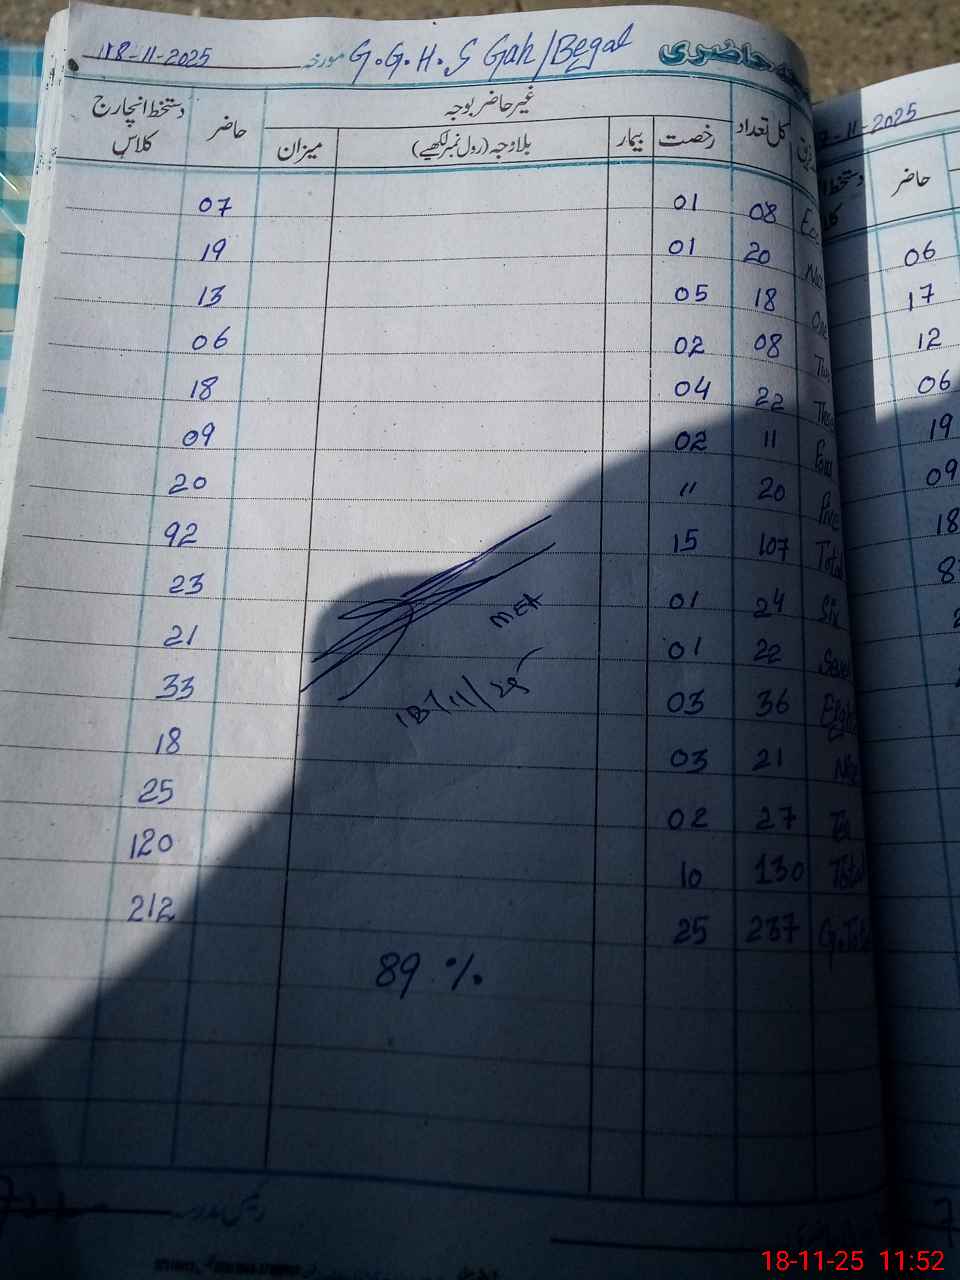 حاضری G.G.H.S Gah/Begal مورخہ 18-11-2025
کل تعداد غیر حاضر بوجہ حاضر دستخط انچارج کلاس
رخصت بیمار بلاوجہ (رول نمبر لکھیے) میزان
08 01 07
20 01 19
One 18 05 13
Two 08 02 06
22 04 18
Four 11 02 09
Five 20 〃 20
Total 107 15 92
Six 24 01 23
Seven 22 01 21
Eight 36 03 33
21 03 18
Ten 27 02 25
Total 130 10 120
G.Total 237 25 212
MEA
18/11/25
89 %
7-11-2025
حاضر
06
17
12
06
19
09
18
18-11-25 11:52